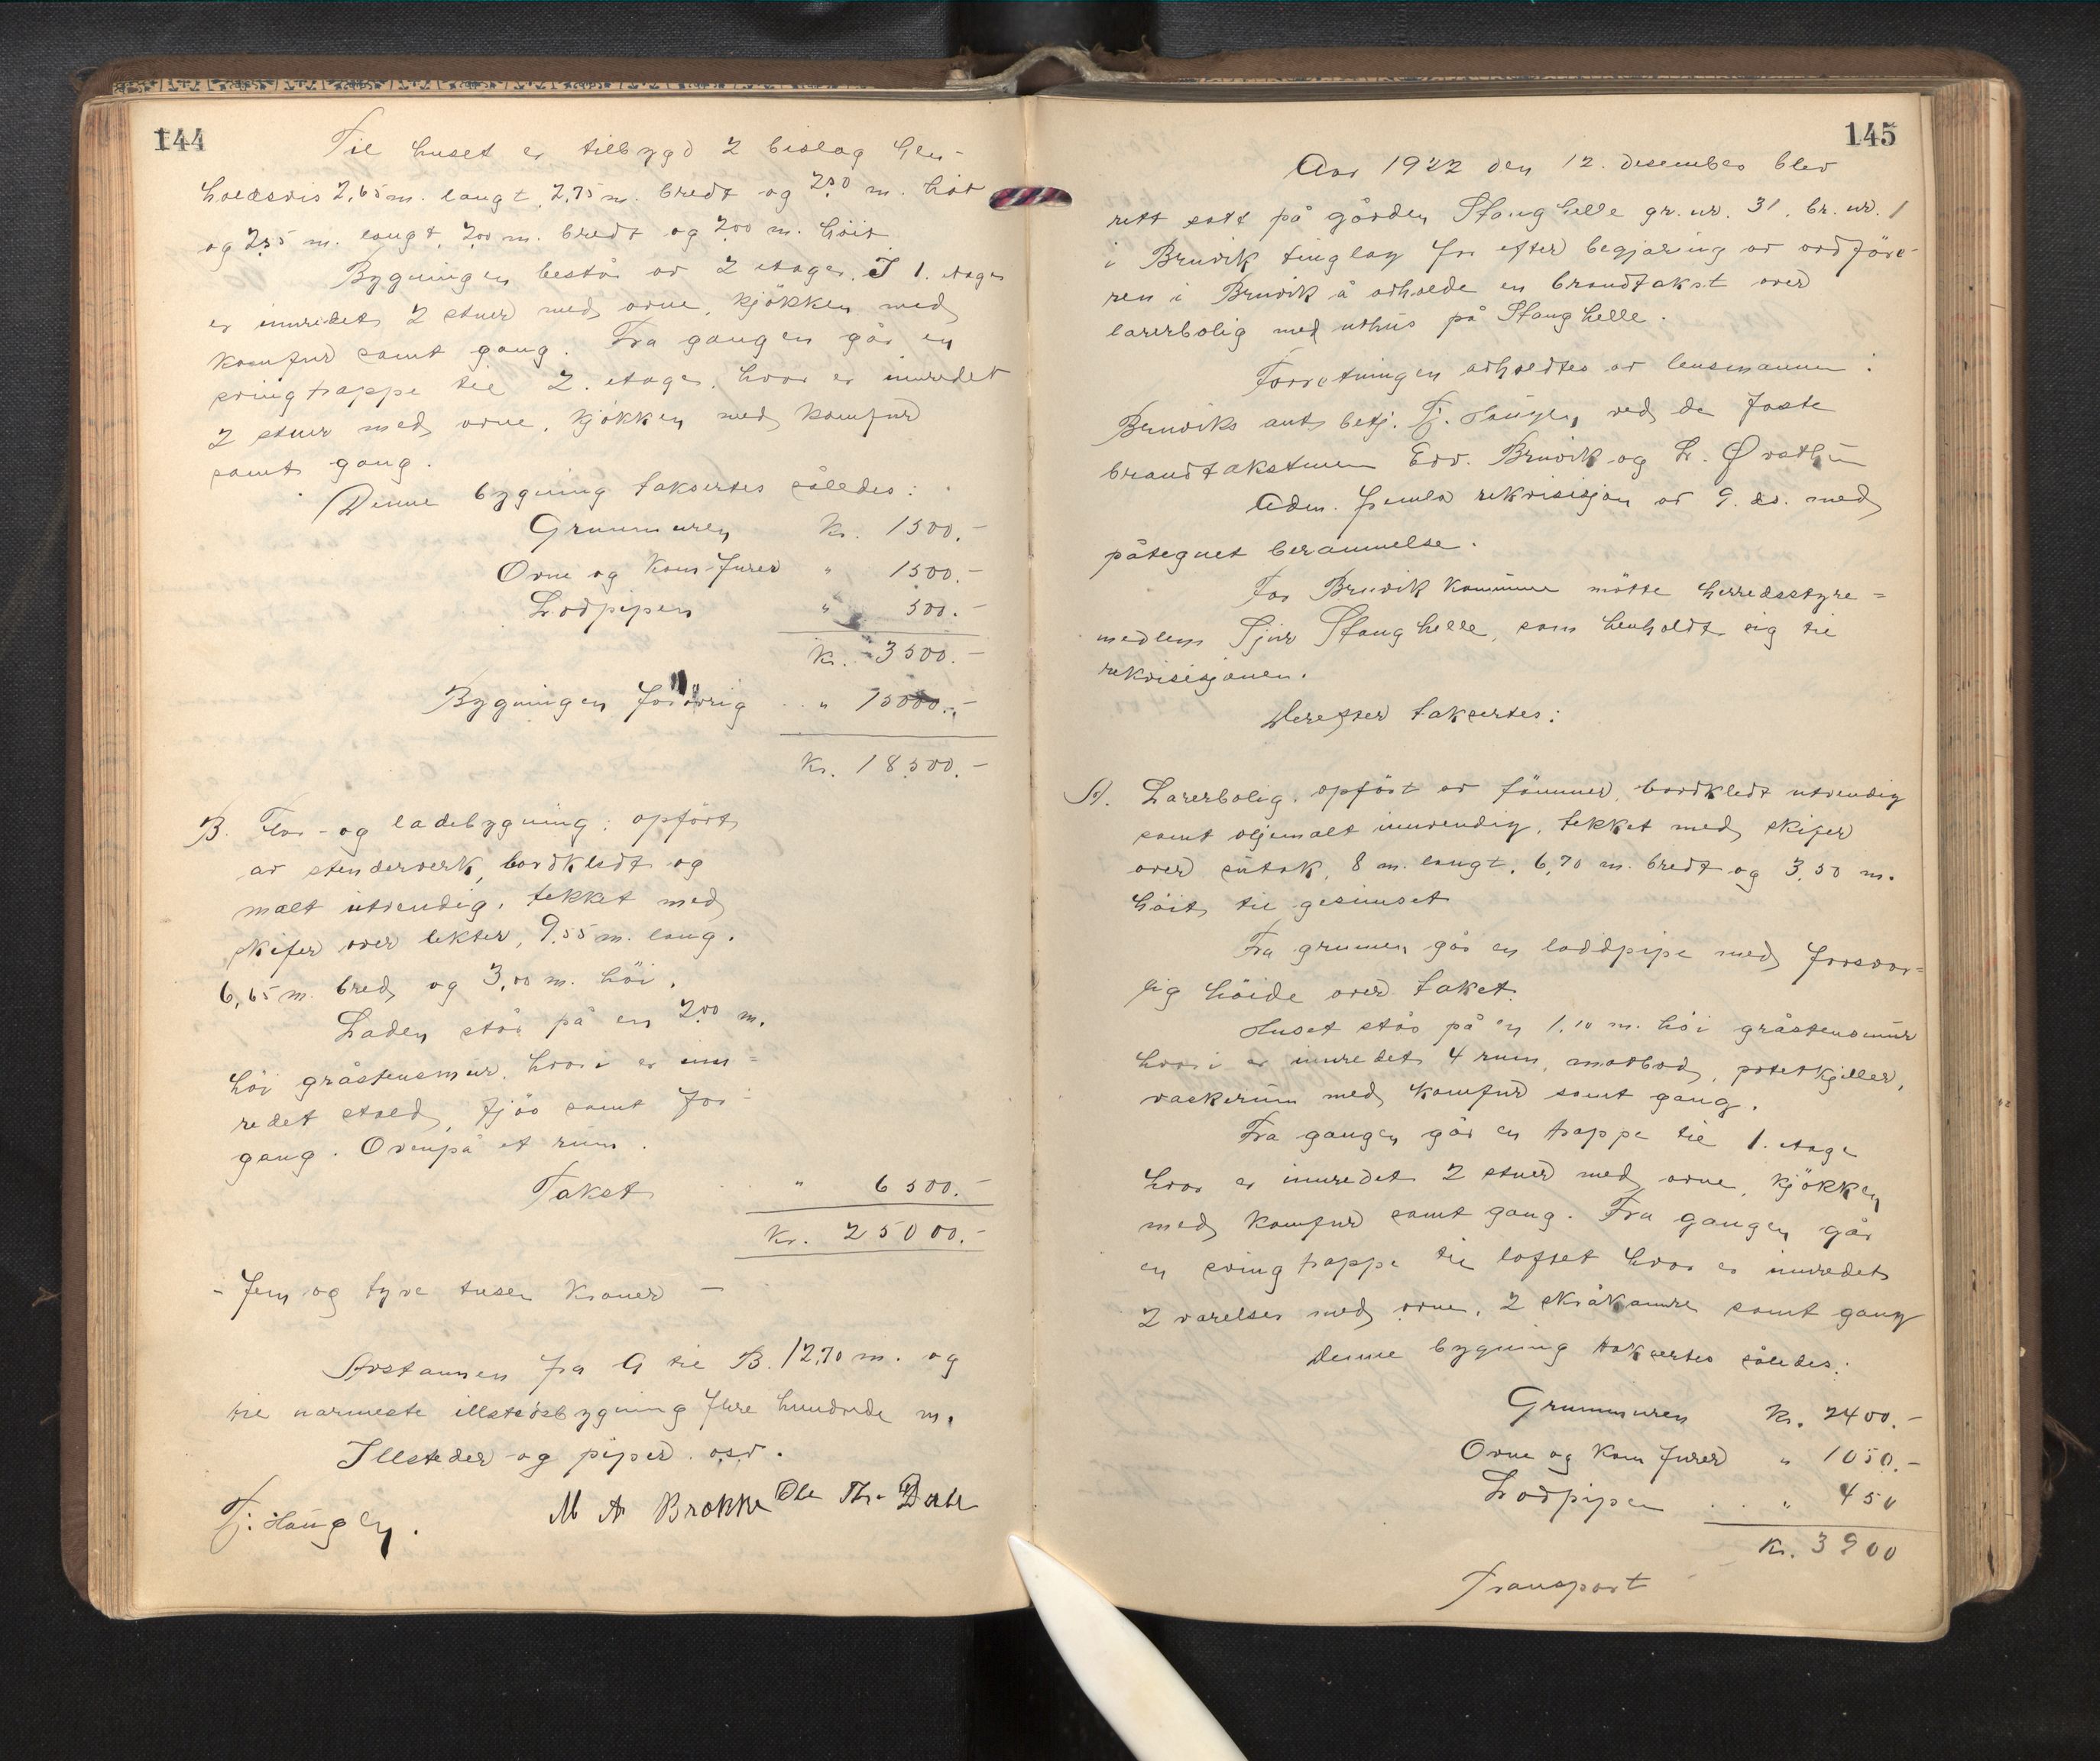 144
Til huset er tilbygd 2 bislag hen-
holdsvis 2,65 m. langt, 2,75 m. bredt og 2,80 m. høit
og 2,85 m. langt, 2,00 m. bredt og 2,00 m. höit
Bygningen består av 2 etager. I 1. etage
er innredet 2 stuer med ovne, kjökken med
komfur samt gang. Fra gangen går en
svingtrappe til 2. etage, hvor er innredet
2 stuer med ovne, kjökken med komfur
samt gang.
Denne bygning taksertes således:
Grunnmuren Kr. 1500.-
Ovne og komfurer " 1500.-
Lodpipen " 500.-
Kr. 3500.-
Bygningen forövrig " 15000.-
Kr. 18500.-
B. Flor- og ladebygning: opfört
av stenderverk, bordkledt og
malt utvendig, tekket med
skifer over lekter, 9,55 m. lang.
6,65 m. bred og 3,00 m. höi.
Laden står på en 2,00 m.
höi gråstensmur, hvori er inn=
redet stald, fjös samt for-
gang. Ovenpå et rum.
Takst " 6500.-
Kr. 25000.-
- Fem og tyve tusen kroner -
Avstannen fra A til B. 12,70 m. og
til narmeste illstedsbygning flere hundrede m.
Illsteder og piper osv.
Tj. Haugen. M A Brakke Ole Th. Dale
145
Aar 1922 den 12. desember blev
rett satt på gården Stanghelle gr. nr. 31, br. nr. 1
i Bruvik tinglag for efter begjaring av ordföre-
ren i Bruvik å avholde en brandtakst over
larerbolig med uthus på Stanghelle.
Forretningen avholdtes av lensmannen i
Bruviks aut. betj. Tj. Haugen, ved de faste
brandtakstmenn Edv. Bruvik og L. Øvsthun
Adm. fremla rekvisisjon av 9. ds. med
påtegnet berammelse.
For Bruvik kommune mötte herredsstyre=
medlem Sjur Stanghelle, som henholdt sig til
rekvisisjonen.
Derefter taksertes:
A. Larerbolig, opfört av tömmer, bordkledt utvendig
samt oljemalt innvendig, tekket med skifer
over sutak, 8 m. langt, 6,70 m. bredt og 3,50 m.
höit til gesimset
Fra grunnen går en loddpipe med forsvar=
lig höide over taket.
Huset står på en 1,10 m. höi gråstensmur
hvori er innredet 4 rum, matbod, potetkjeller,
vaskerum med komfur samt gang.
Fra gangen går en trappe til 1. etage
hvor er innredet 2 stuer med ovne, kjökken
med komfur samt gang. Fra gangen går
en svingtrappe til loftet hvor er innredet
2 varelser med ovne, 2 skråkamre samt gang
Denne bygning taksertes således:
Grunnmuren Kr. 2400.-
Ovne og komfurer " 1050.-
Lodpipen " 450
Kr. 3900
Transport